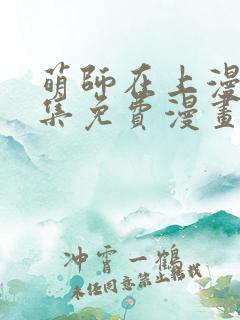 萌師在上漫
集免費漫畫
冲霄一鶴
未经同意禁止转载